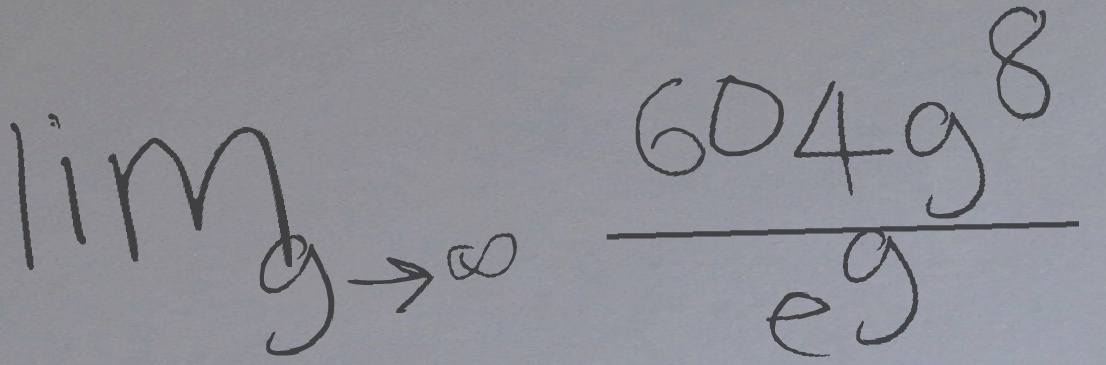 \lim_{g \to \infty} \frac{604g^8}{e^g}